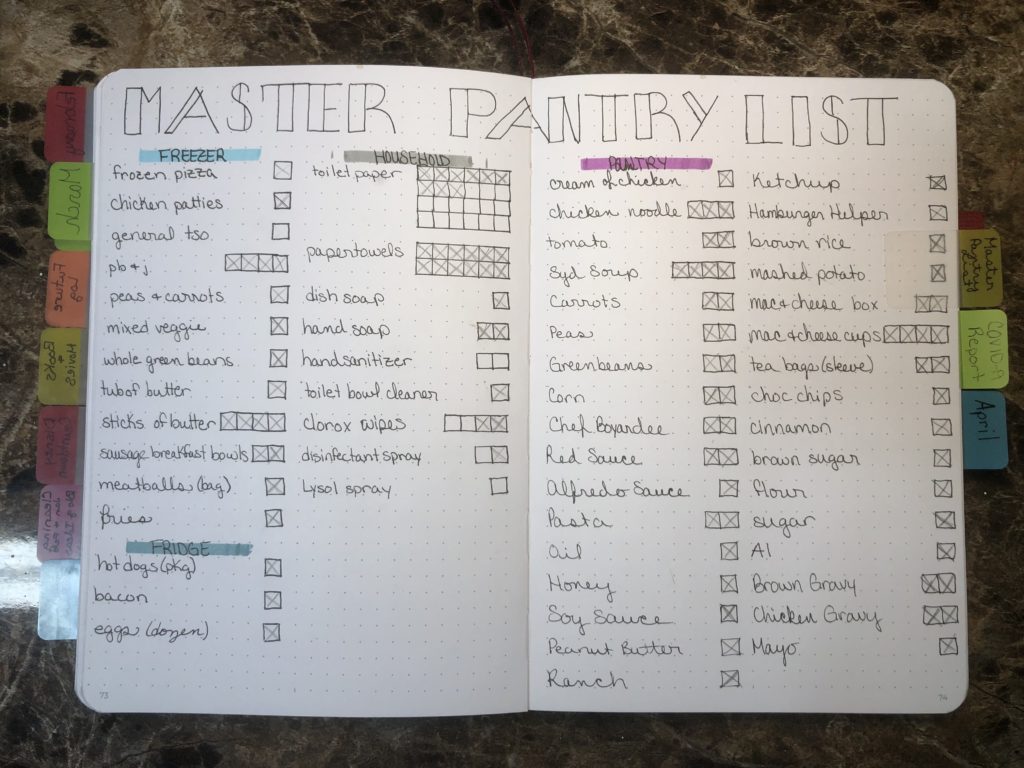 MASTER PANTRY LIST
FREEZER
frozen pizza
chicken patties
general tso
pb & j
peas & carrots
mixed veggie
whole green beans
tub of butter
sticks of butter
sausage breakfast bowls
meatballs (bag)
fries
FRIDGE
hot dogs (pkg)
bacon
eggs (dozen)
HOUSEHOLD
toilet paper
papertowels
dish soap
hand soap
handsanitizer
toilet bowl cleaner
clorox wipes
disinfectant spray
Lysol spray
73
PANTRY
cream of chicken
chicken noodle
tomato
Syd Soup
Carrots
Peas
Greenbeans
Corn
Chef Boyardee
Red Sauce
Alfredo Sauce
Pasta
Oil
Honey
Soy Sauce
Peanut Butter
Ranch
Ketchup
Hamburger Helper
brown rice
mashed potato
mac & cheese box
mac & cheese cups
tea bags (sleeve)
choc chips
cinnamon
brown sugar
flour
sugar
A1
Brown Gravy
Chicken Gravy
Mayo
74
February
March
Future
Log
Movies
+
Books
Cleaning
Master
Pantry
List
COVID-19
Report
April